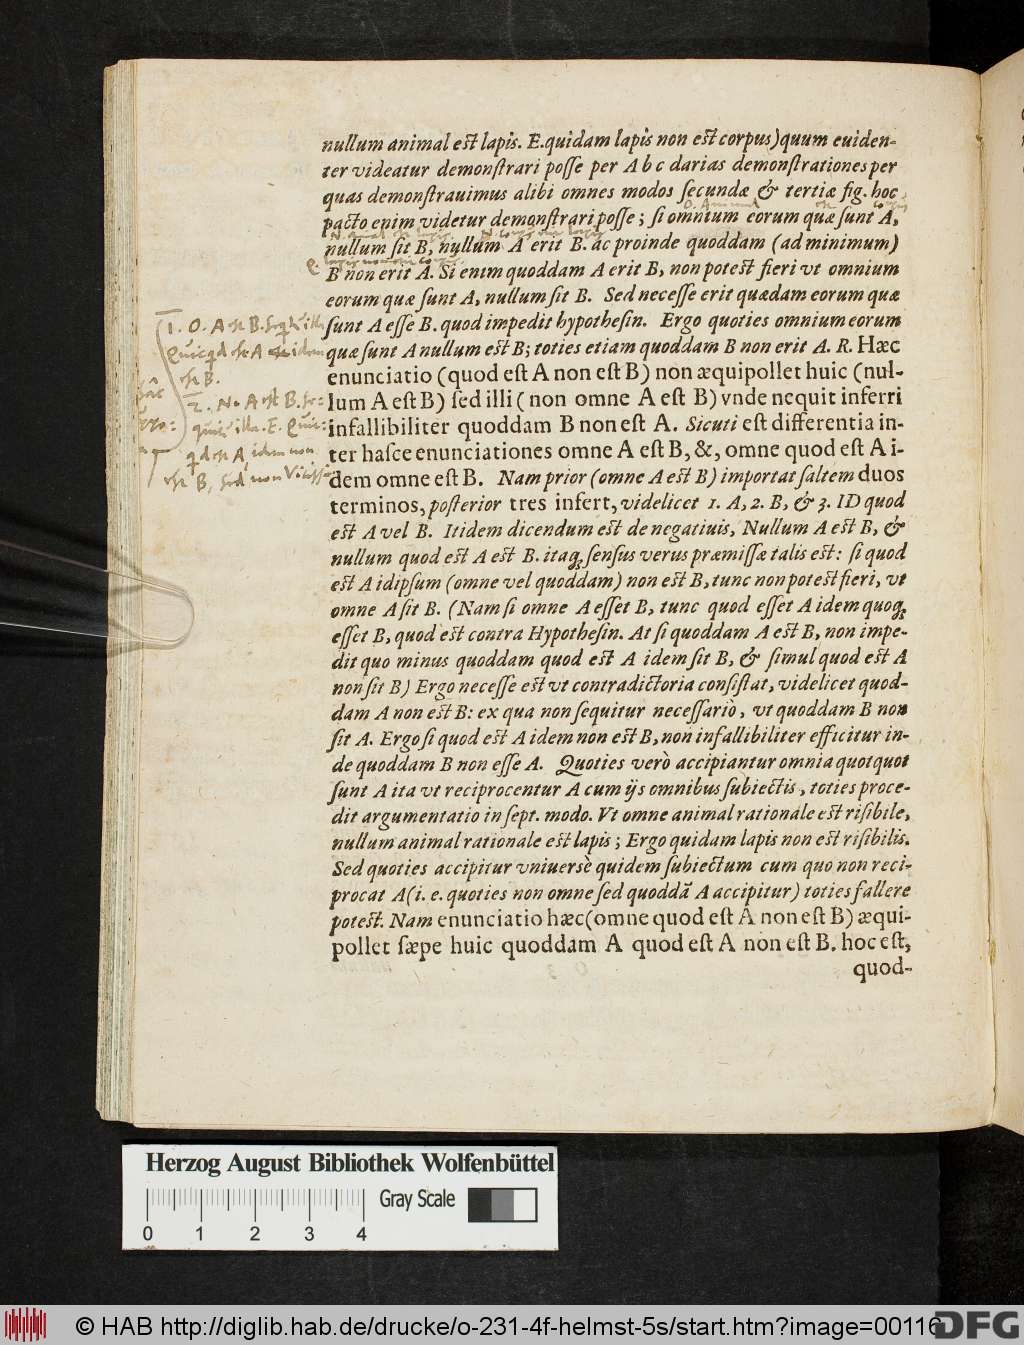 nullum animal est lapis. E. quidam lapis non est corpus) quum euiden-
ter videatur demonſtrari poſſe per A b c darias demonſtrationes per
quas demonſtrauimus alibi omnes modos ſecundæ & tertiæ fig. hoc
pacto enim videtur demonſtrari poſſe; ſi omnium eorum quæ ſunt A,
nullum ſit B, nullum A erit B. ac proinde quoddam (ad minimum)
B non erit A. Si enim quoddam A erit B, non potest fieri vt omnium
eorum quæ ſunt A, nullum ſit B. Sed neceſſe erit quædam eorum quæ
ſunt A eſſe B. quod impedit hypotheſin. Ergo quoties omnium eorum
quæ ſunt A nullum est B; toties etiam quoddam B non erit A. R. Hæc
enunciatio (quod eſt A non eſt B) non æquipollet huic (nul-
lum A eſt B) ſed illi (non omne A eſt B) vnde nequit inferri
infallibiliter quoddam B non eſt A. Sicuti eſt differentia in-
ter haſce enunciationes omne A eſt B, &, omne quod eſt A i-
dem omne eſt B. Nam prior (omne A est B) importat ſaltem duos
terminos, poſterior tres infert, videlicet 1. A, 2. B, & 3. ID quod
est A vel B. Itidem dicendum est de negatiuis, Nullum A est B, &
nullum quod est A est B. itaq; ſenſus verus præmiſſæ talis est: ſi quod
est A idipſum (omne vel quoddam) non est B, tunc non potest fieri, vt
omne A ſit B. (Nam ſi omne A eſſet B, tunc quod eſſet A idem quoq;
eſſet B, quod est contra Hypotheſin. At ſi quoddam A est B, non impe-
dit quo minus quoddam quod est A idem ſit B, & ſimul quod est A
non ſit B) Ergo neceſſe est vt contradictoria conſiſtat, videlicet quod-
dam A non est B: ex qua non ſequitur neceſſariò, vt quoddam B non
ſit A. Ergo ſi quod est A idem non est B, non infallibiliter efficitur in-
de quoddam B non eſſe A. Quoties verò accipiantur omnia quotquot
ſunt A ita vt reciprocentur A cum ijs omnibus ſubiectis, toties proce-
dit argumentatio in ſept. modo. Vt omne animal rationale est riſibile,
nullum animal rationale est lapis; Ergo quidam lapis non est riſibilis.
Sed quoties accipitur vniuersè quidem ſubiectum cum quo non reci-
procat A (i. e. quoties non omne ſed quoddã A accipitur) toties fallere
potest. Nam enunciatio hæc (omne quod eſt A non eſt B) æqui-
pollet ſæpe huic quoddam A quod eſt A non eſt B. hoc eſt,
quod-
1. O. A est B.
est B.
2. N. A est B.
est B, sed non
Herzog August Bibliothek Wolfenbüttel
Gray Scale
0 1 2 3 4
© HAB http://diglib.hab.de/drucke/o-231-4f-helmst-5s/start.htm?image=00116
DFG